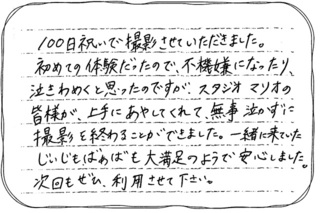 100日祝いで撮影させていただきました。
初めての体験だったので、不機嫌になったり、
泣きわめくと思ったのですが、スタジオマリオの
皆様が、上手にあやしてくれて、無事泣かずに
撮影を終わることができました。一緒に来ていた
じぃじもばぁばも大満足のようで安心しました。
次回もぜひ、利用させて下さい。